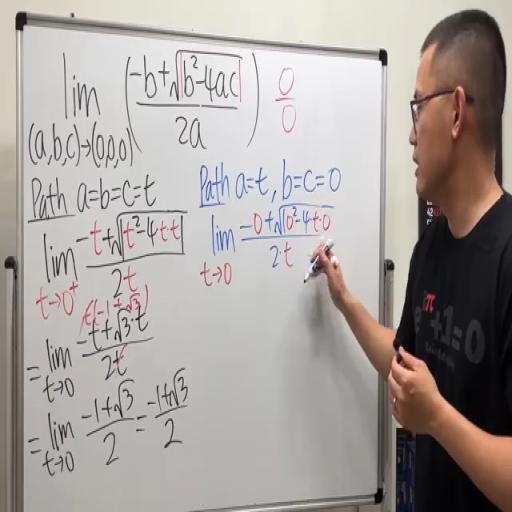 lim (a,b,c)→(0,0,0) ( (-b+√|b²-4ac|) / 2a ) 0/0
Path a=b=c=t
lim t→0⁺ (-t+√|t²-4·t·t|) / 2t
t(-1+√3)
= lim t→0 (-t+√3·t) / 2t
= lim t→0 (-1+√3) / 2 = (-1+√3) / 2
Path a=t, b=c=0
lim t→0 (-0+√|0²-4·t·0|) / 2·t
π
+1=0